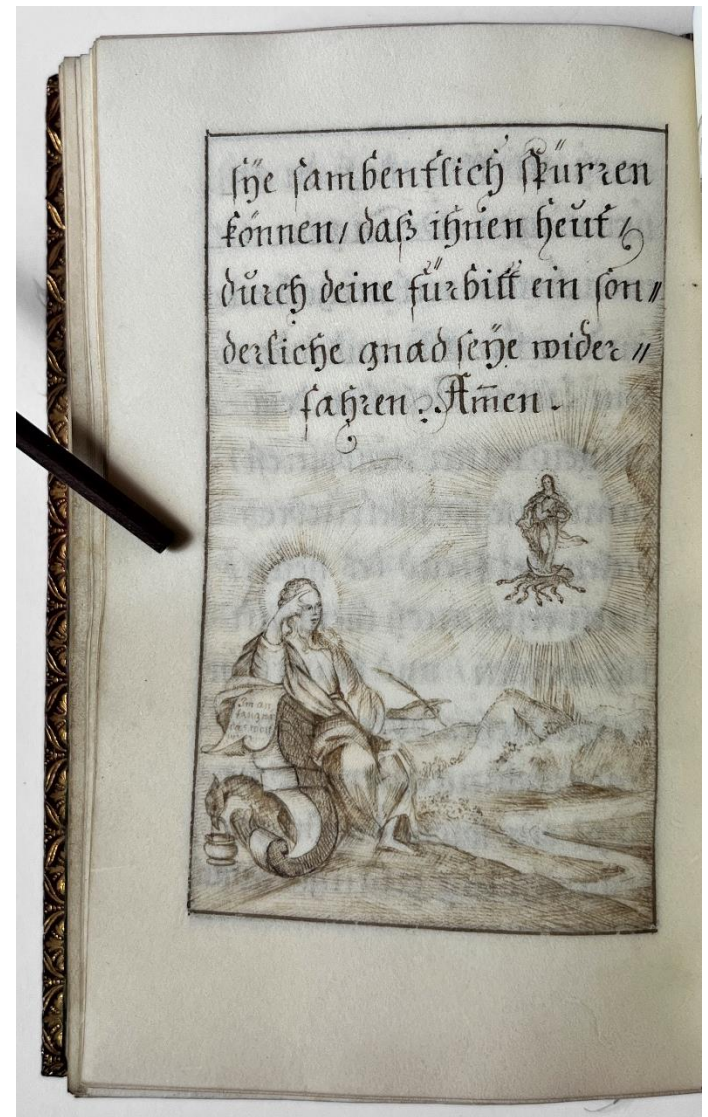 sÿe sambentlich spürren
können / daß ihnen heut /
durch deine fürbitt ein son〃
derliche gnad seÿe wider〃
fahren. Am̄en.
Im an
fang war
das wort